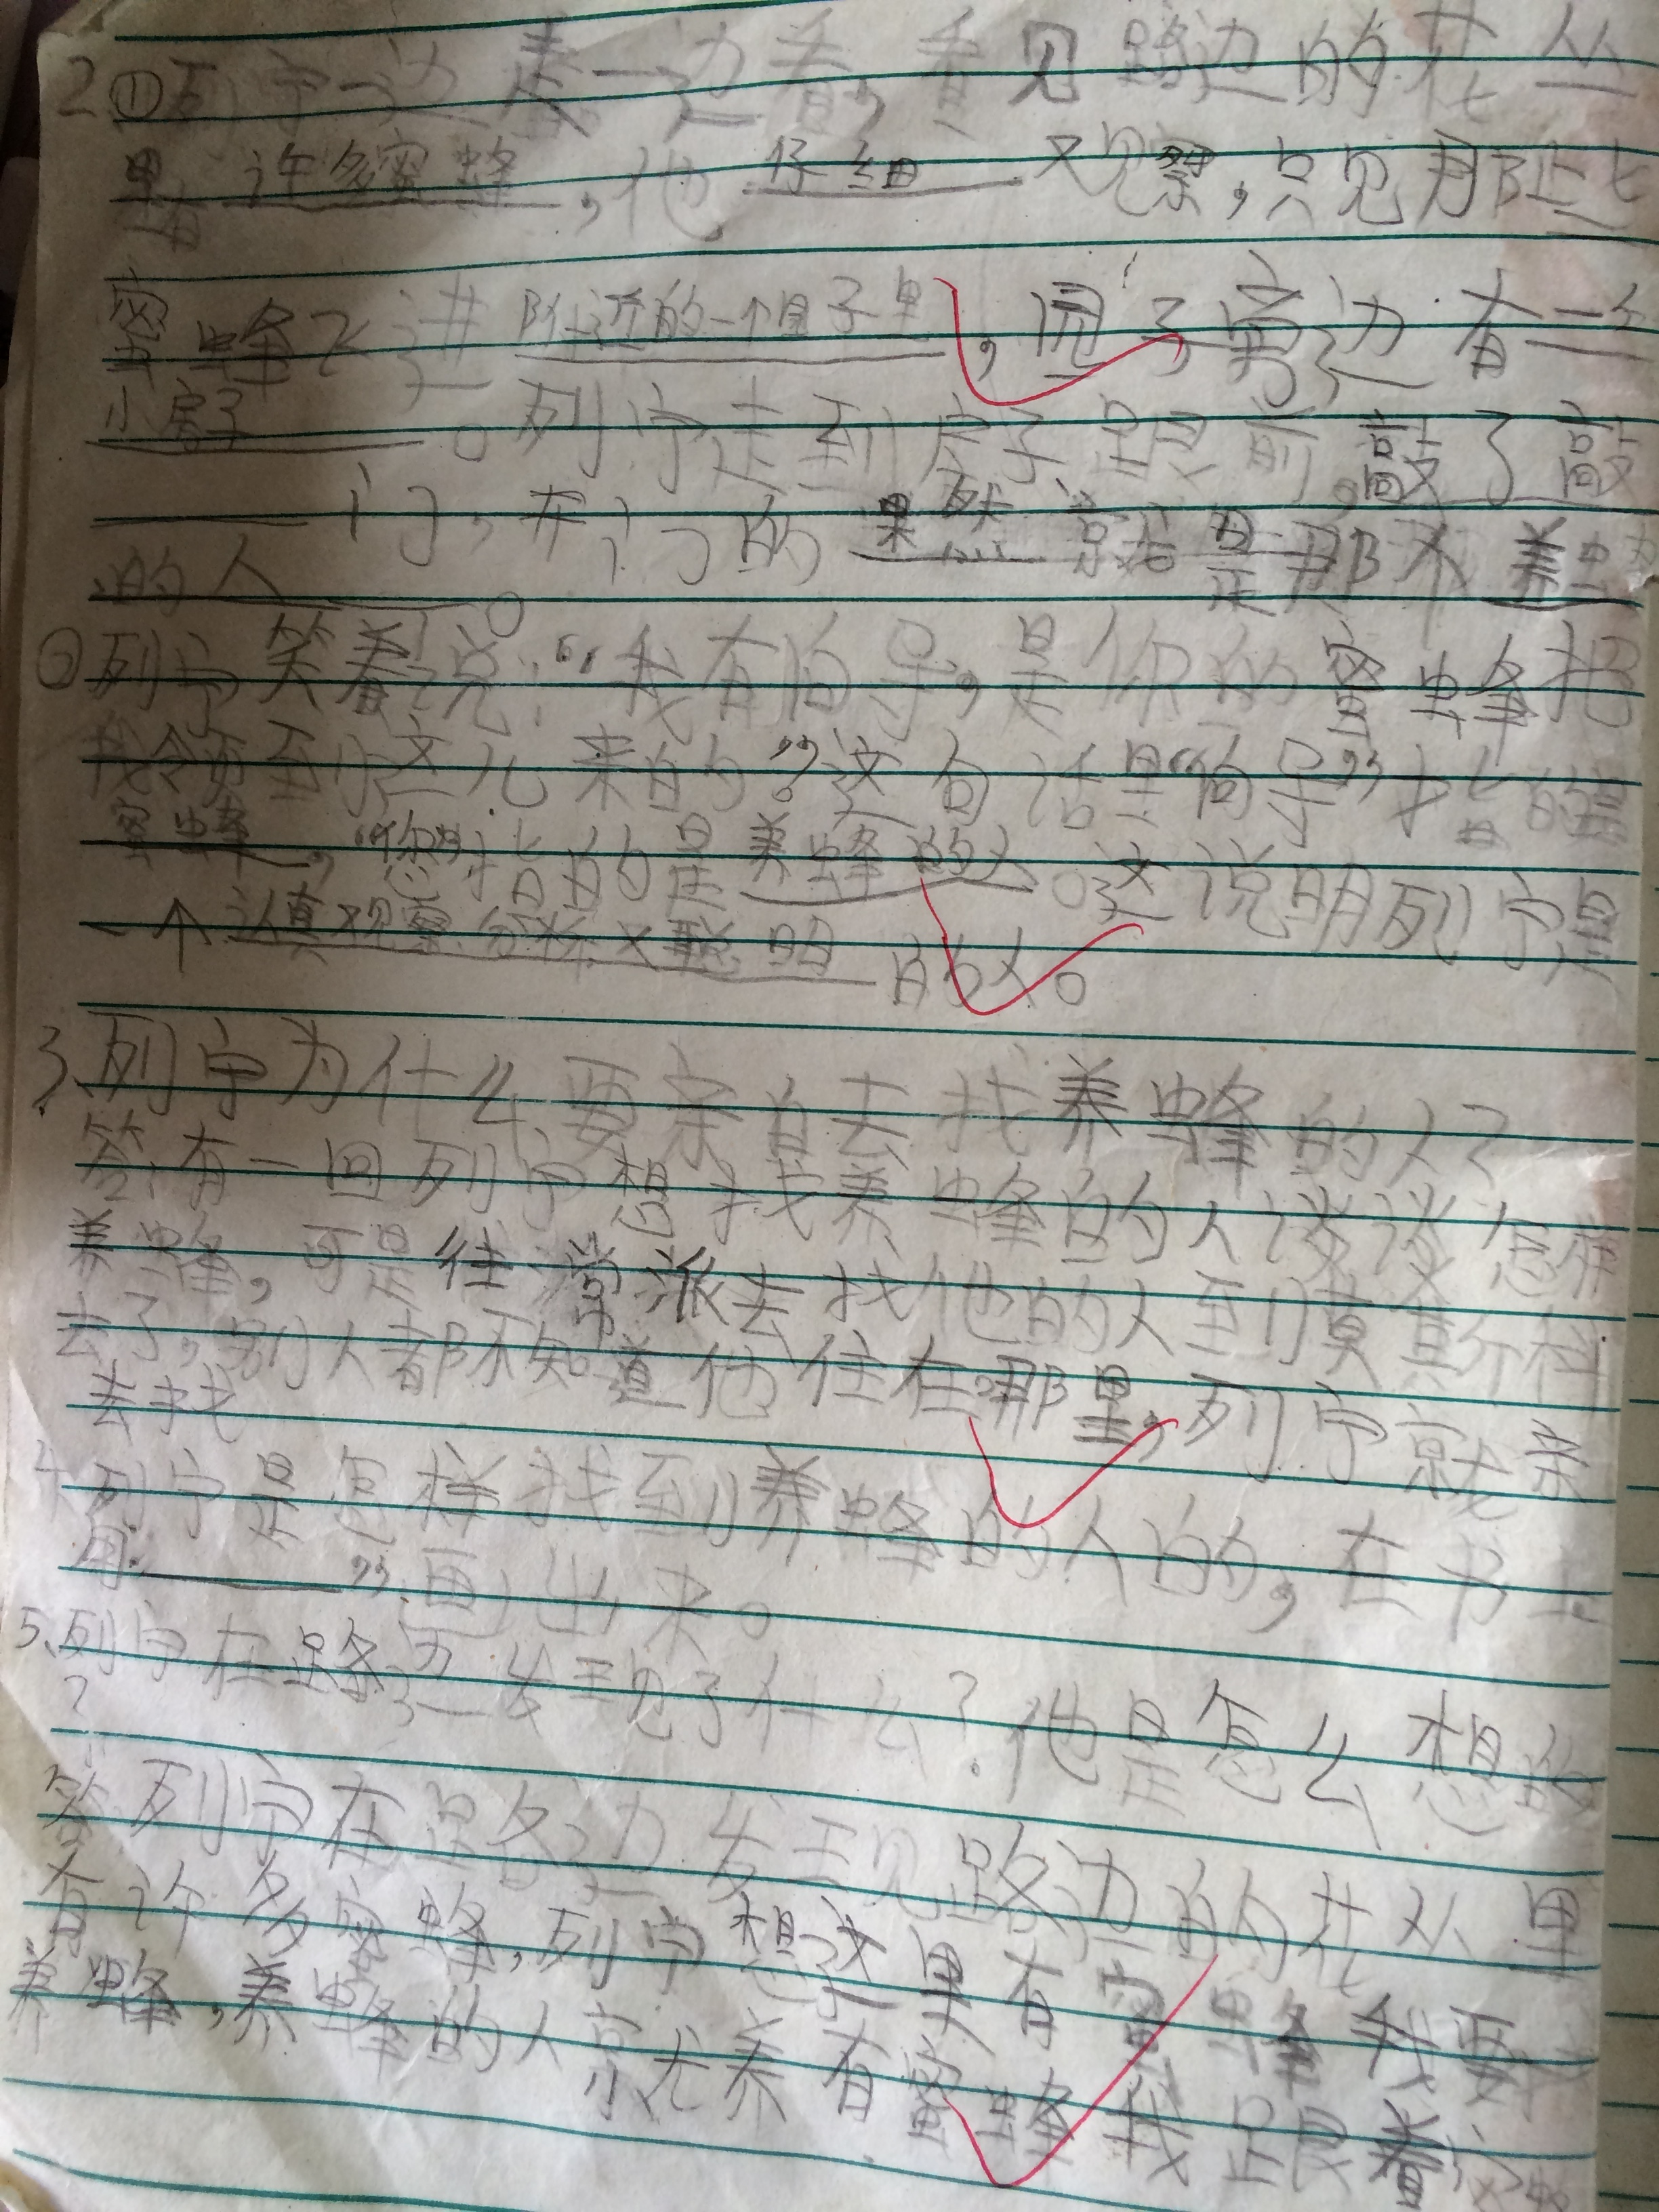 2①列宁一边走一边看,看见路边的花丛
里有许多蜜蜂,他仔细观察,只见那些
蜜蜂飞进附近的一个园子里,园子旁边有一个
小房子。列宁走到房子跟前,敲了敲
门,开门的果然就是那个养蜂
的人。
②列宁笑着说:“我有向导,是你的蜜蜂把
我领到这儿来的”。这句话里“向导”指的是
蜜蜂,“您”指的是养蜂的人。这说明列宁是
一个认真观察分析又聪明的人。
3、列宁为什么要亲自去找养蜂的人?
答:有一回列宁想找养蜂的人谈谈怎样
养蜂,可是往常派去找他的人到莫斯科
去了,别人都不知道他住在哪里,列宁就亲
去找
4、列宁是怎样找到养蜂的人的,在书上
用 ”画出来。
5、列宁在路边发现了什么?他是怎么想的
?
答:列宁在路边发现路边的花丛里
有许多蜜蜂,列宁想这里有蜜蜂我要
养蜂,养蜂的人就养有蜜蜂我跟着